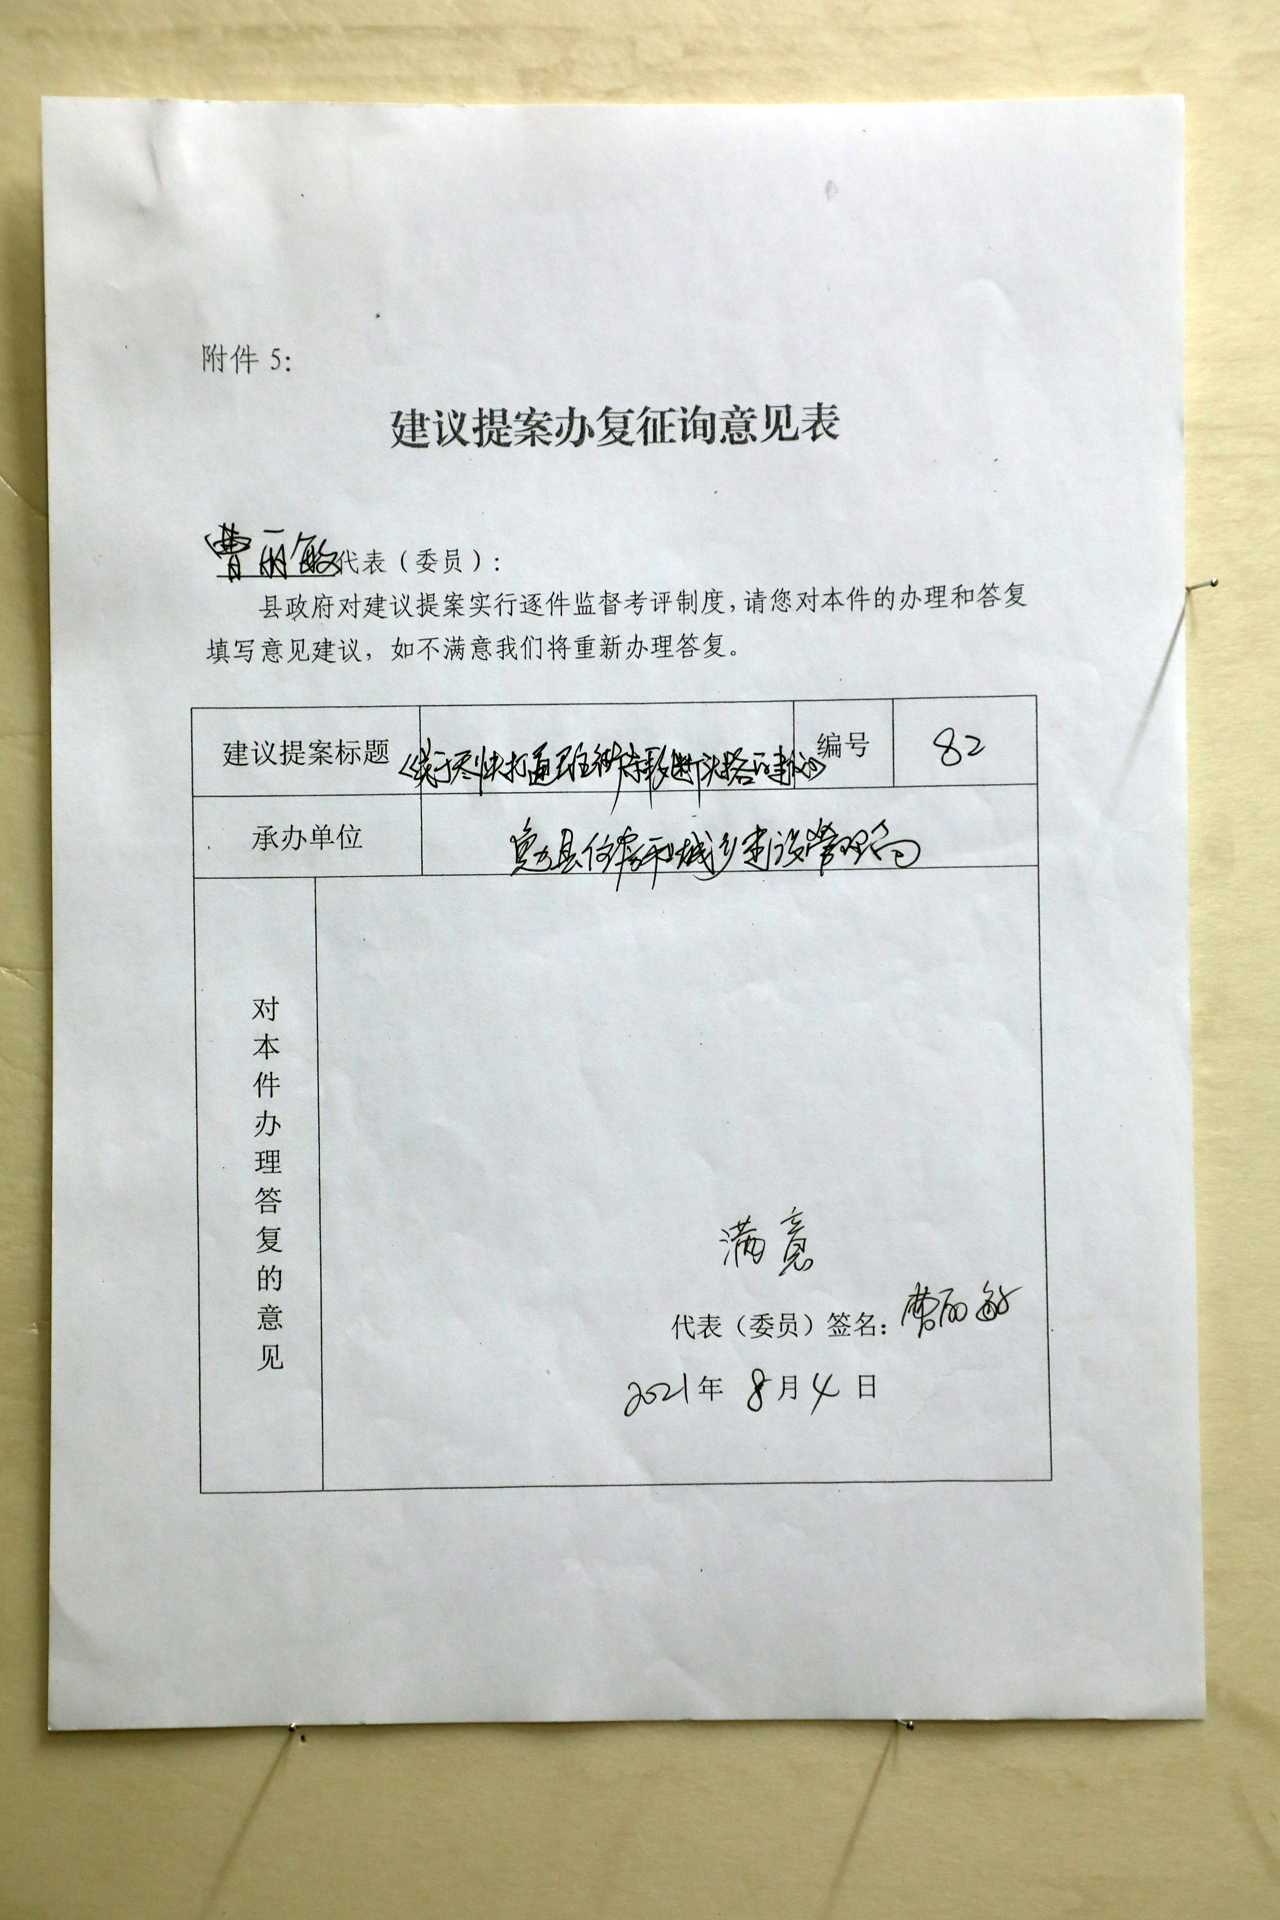 附件 5:
建议提案办复征询意见表
曹丽敏代表（委员）：
县政府对建议提案实行逐件监督考评制度，请您对本件的办理和答复
填写意见建议，如不满意我们将重新办理答复。
建议提案标题 《关于尽快打通 断头路的建议》 编号 82
承办单位 县住房和城乡建设管理局
对本件办理答复的意见
满意
代表（委员）签名：曹丽敏
2021年 8月4日